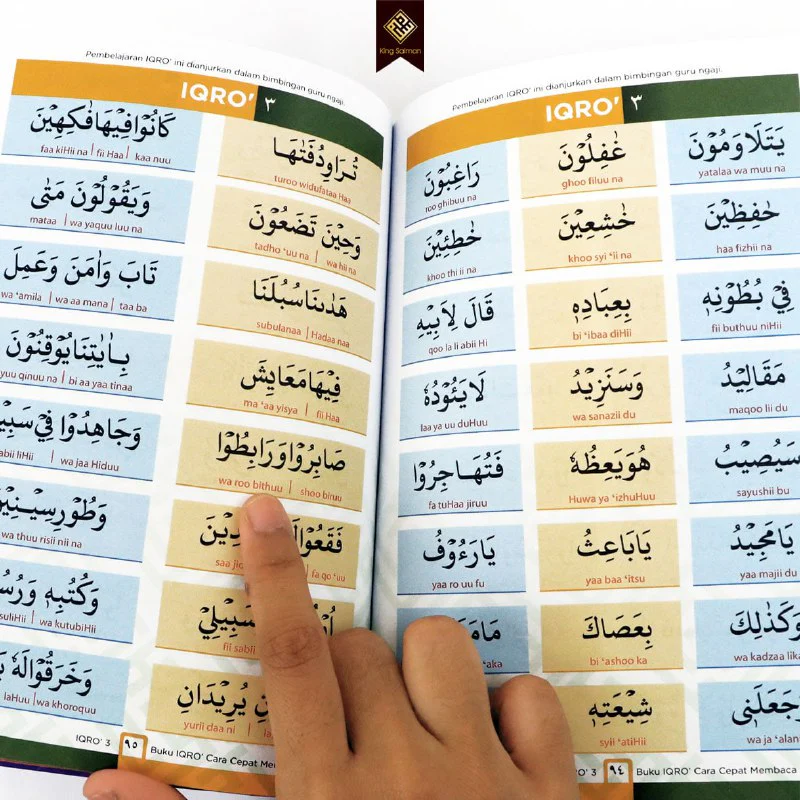 King Salman
Pembelajaran IQRO' ini dianjurkan dalam bimbingan guru ngaji.
IQRO' ٣
يَتَلَاوَمُوْنَ
yatalaa wa muu na
غٰفِلُوْنَ
ghoo filuu na
رَاغِبُوْنَ
roo ghibuu na
حٰفِظِيْنَ
haa fizhii na
خٰشِعِيْنَ
khoo syi 'ii na
خٰطِئِيْنَ
khoo thi ii na
فِيْ بُطُوْنِهٖ
fii buthuu niHii
بِعِبَادِهٖ
bi 'ibaa diHii
قَالَ لِاَبِيْهِ
qoo la li abii Hi
مَقَالِيْدُ
maqoo lii du
وَسَنَزِيْدُ
wa sanazii du
لَا يَئُوْدُهٗ
laa ya uu duHuu
سَيُصِيْبُ
sayushii bu
هُوَيَعِظُهٗ
Huwa ya 'izhuHuu
فَتُهَاجِرُوْا
fa tuHaa jiruu
يَامَجِيْدُ
yaa majii du
يَابَاعِثُ
yaa baa 'itsu
يَارَءُوْفُ
yaa ro uu fu
وَكَذٰلِكَ
wa kadzaa lika
بِعَصَاكَ
bi 'ashoo ka
'aka
وَجَعَلَنِيْ
wa ja 'alanii
شِيْعَتِهٖ
syii 'atiHii
٩٤
Buku IQRO' Cara Cepat Membaca
Pembelajaran IQRO' ini dianjurkan dalam bimbingan guru ngaji.
IQRO' ٣
تُرَاوِدُفَتٰىهَا
turoo widufataa Haa
كَانُوْا فِيْهَا فٰكِهِيْنَ
faa kiHii na | fii Haa | kaa nuu
وَحِيْنَ تَضَعُوْنَ
tadho 'uu na | wa hii na
وَيَقُوْلُوْنَ مَتٰى
mataa | wa yaquu luu na
هَدٰىنَا سُبُلَنَا
subulanaa | Hadaa naa
تَابَ وَاٰمَنَ وَعَمِلَ
wa 'amila | wa aa mana | taa ba
فِيْهَا مَعَايِشَ
ma 'aa yisya | fii Haa
بِاٰيٰتِنَا يُوْقِنُوْنَ
yuu qinuu na | bi aa yaa tinaa
صَابِرُوْا وَرَابِطُوْا
wa roo bithuu | shoo biruu
وَجَاهِدُوْا فِيْ
wa jaa Hiduu
فَقَعُوْا
fa qo 'uu
وَطُوْرِسِيْنِيْنَ
wa thuu risii nii na
سَبِيْلِيْ
fii sabii
وَكُتُبِهٖ
wa kutubiHii
يُرِيْدَانِ
yurii daa ni
وَخَرَقُوْالَهٗ
laHuu | wa khoroquu
IQRO' 3
٩٥
Buku IQRO' Cara Cepat